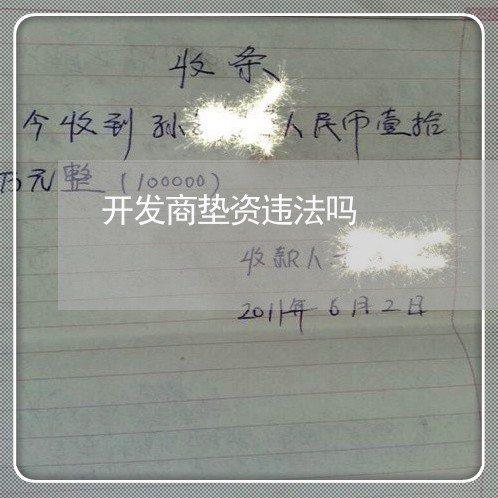 收条
今收到孙 人民币壹拾
万元整（100000）
开发商垫资违法吗
收款人
2011年6月2日